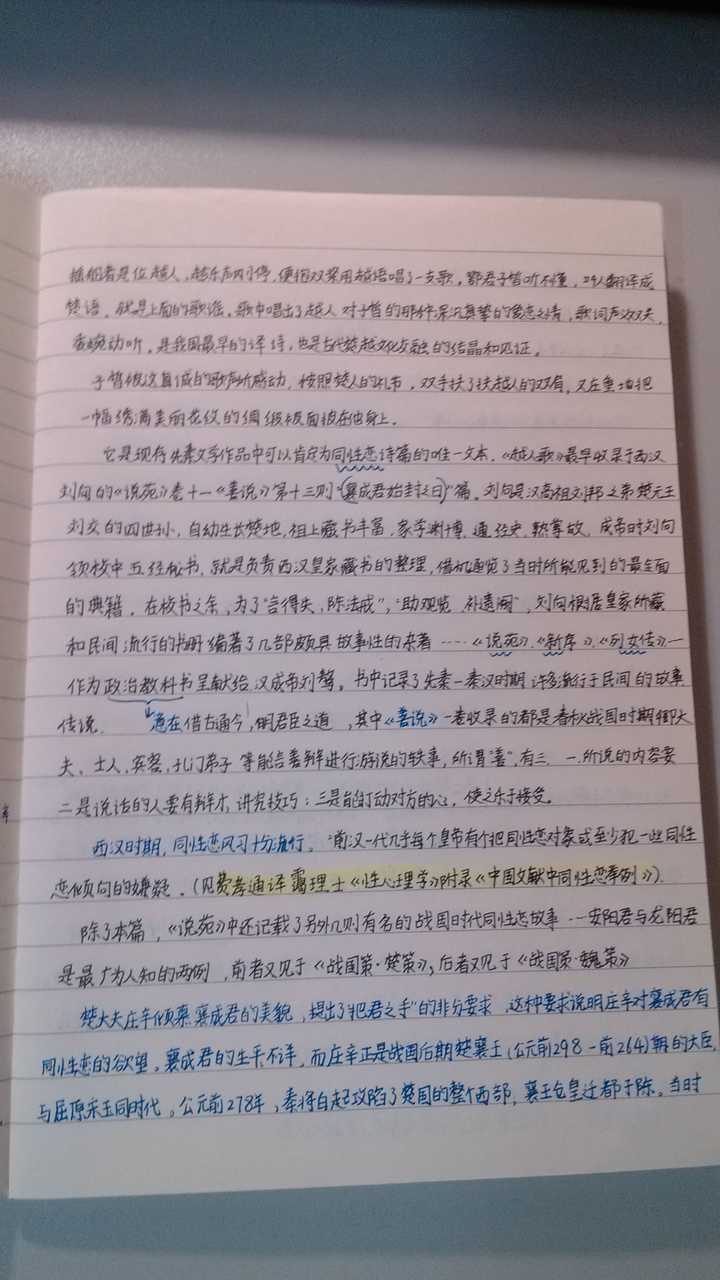 摇船者是位越人,趁乐声刚停,便抱双桨用越语唱了一支歌。鄂君子皙听不懂,叫人翻译成
楚语。就是上面的歌谣。歌中唱出了越人对子皙的那种深沉真挚的爱恋之情,歌词声义双关,
委婉动听。是我国最早的译诗,也是古代楚越文化交融的结晶和见证。
子皙被这真诚的歌声所感动,按照楚人的礼节,双手扶了扶越人的双肩,又庄重地把
一幅绣满美丽花纹的绸缎被面披在他身上。
它是现存先秦文学作品中可以肯定为同性恋诗篇的唯一文本。《越人歌》最早收录于西汉
刘向的《说苑》卷十一《善说》第十三则"(襄成君始封之日)"篇。刘向是汉高祖刘邦之弟楚元王
刘交的四世孙,自幼生长楚地,祖上藏书丰富,家学渊博,通经史,熟掌故。成帝时刘向
领校中五经秘书,就是负责西汉皇家藏书的整理,借机通览了当时所能见到的最全面
的典籍。在校书之余,为了"言得失,陈法戒","助观览,补遗阙",刘向根据皇家所藏
和民间流行的书册编著了几部颇具故事性的杂著……《说苑》、《新序》、《列女传》—
作为政治教科书呈献给汉成帝刘骜。书中记录了先秦—秦汉时期许多流行于民间的故事
传说。 意在借古通今,明君臣之道,其中《善说》一卷收录的都是春秋战国时期卿大
夫、士人、宾客、孔门弟子等能言善辩进行游说的轶事,所谓"善",有三.一.所说的内容要
二是说话的人要有辩才,讲究技巧;三是能打动对方的心,使之乐于接受。
西汉时期,同性恋风习十分流行。"前汉一代几乎每个皇帝有个把同性恋对象或至少犯一些同性
恋倾向的嫌疑。(见费孝通译霭理士《性心理学》附录《中国文献中同性恋举例》).
除了本篇,《说苑》中还记载了另外几则有名的战国时代同性恋故事.—安陵君与龙阳君
是最广为人知的两例,前者又见于《战国策·楚策》,后者又见于《战国策·魏策》
楚大夫庄辛倾慕襄成君的美貌,提出了"把君之手"的非分要求,这种要求说明庄辛对襄成君有
同性恋的欲望。襄成君的生平不详,而庄辛正是战国后期楚襄王(公元前298—前264)朝的大臣,
与屈原宋玉同时代。公元前278年,秦将白起攻陷了楚国的整个西部,襄王仓皇迁都于陈。当时